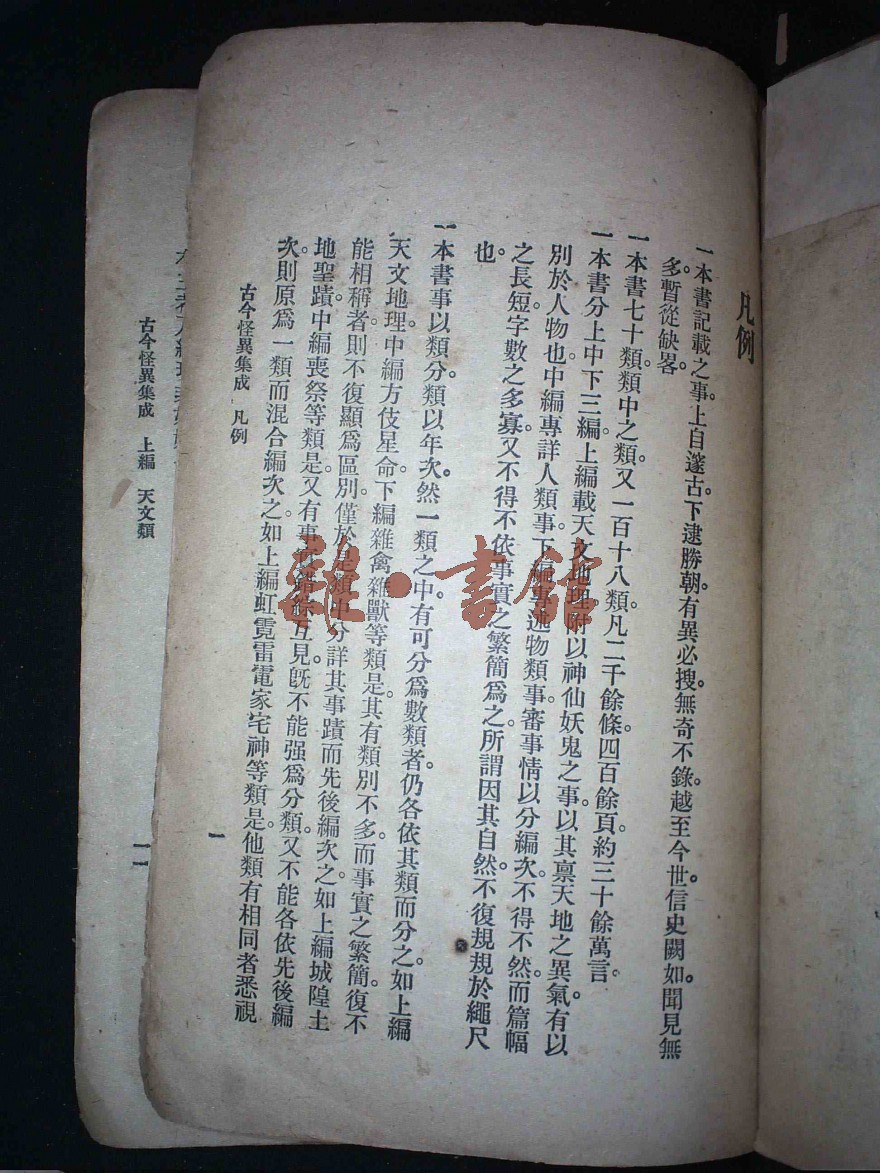 凡例
一本書記載之事。上自邃古。下逮勝朝。有異必搜。無奇不錄。越至今世。信史闕如。聞見無
多。暫從缺畧。
一本書七十類。類中之類。又一百十八類。凡二千餘條。四百餘頁。約三十餘萬言。
一本書分上中下三編。上編載天文地理。附以神仙妖鬼之事。以其禀天地之異氣。有以
別於人物也。中編專詳人類事。下編專述物類事。審事情以分編次。不得不然。而篇幅
之長短。字數之多寡。又不得不依事實之繁簡爲之。所謂因其自然。不復規規於繩尺
也。
一本書事以類分。類以年次。然一類之中。有可分爲數類者。仍各依其類而分之。如上編
天文地理。中編方伎星命。下編雜禽雜獸等類是。其有類別不多。而事實之繁簡。復不
能相稱者。則不復顯爲區別。僅於是類中分詳其事蹟。而先後編次之。如上編城隍土
地聖蹟。中編喪祭等類是。又有事實錯綜互見。旣不能强爲分類。又不能各依先後編
次。則原爲一類而混合編次之。如上編虹霓雷電家宅神等類是。他類有相同者悉視
古今怪異集成 凡例
一
古今怪異集成 上編 天文類
一一
雜·書館